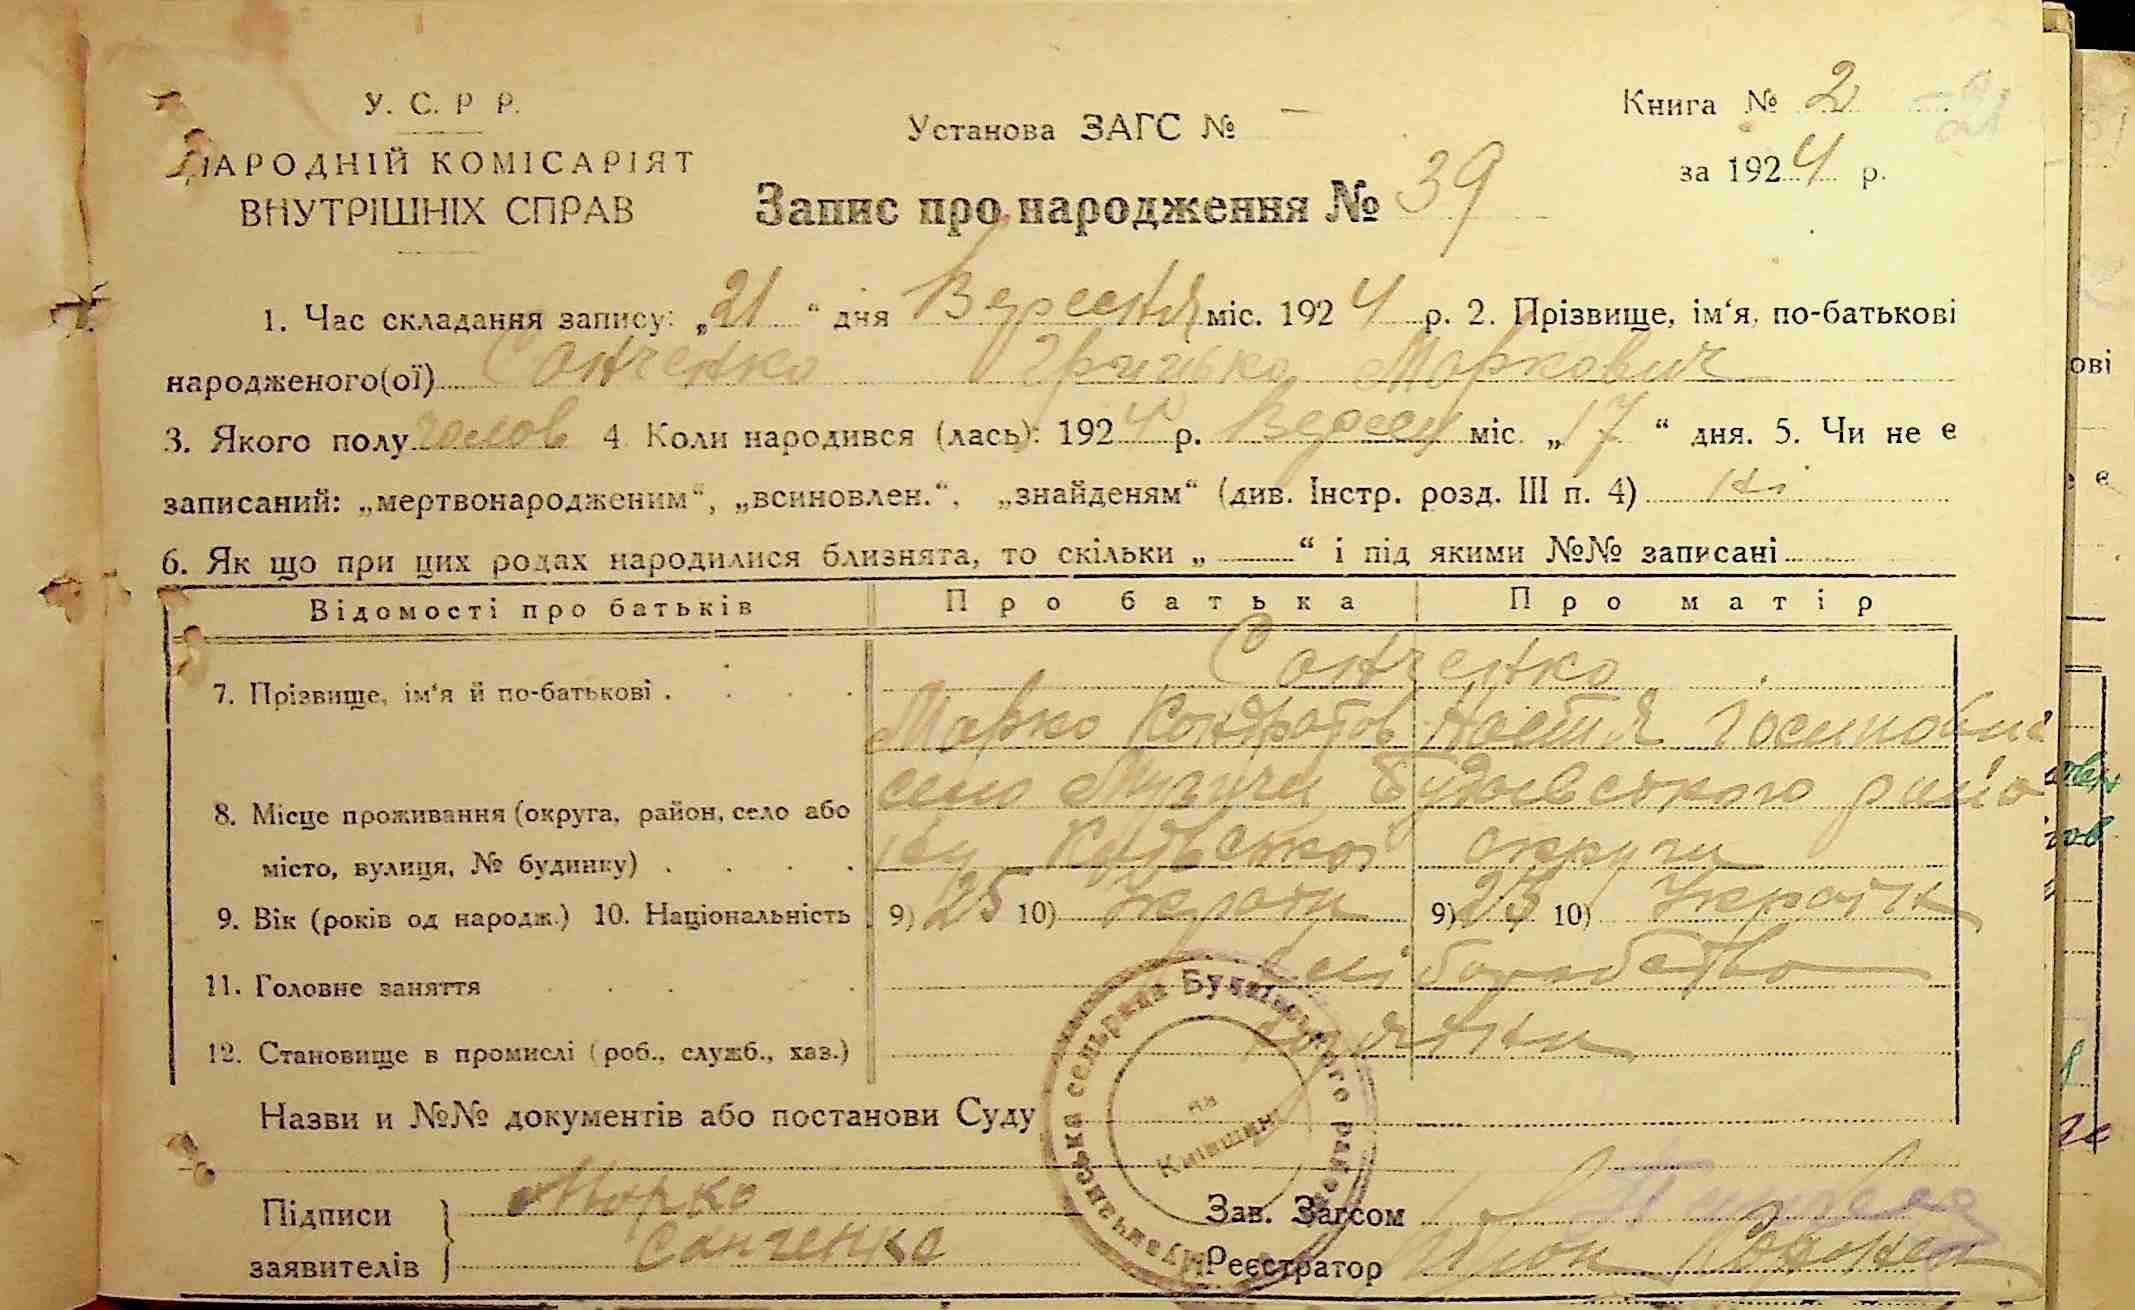 У. С. Р Р.
НАРОДНІЙ КОМІСАРІЯТ
ВНУТРІШНІХ СПРАВ
Установа ЗАГС № —
Книга № 2
за 1924 р.
Запис про народження № 39
1. Час складання запису: „21“ дня Вересня міс. 1924 р. 2. Прізвище, ім‘я, по-батькові
народженого(ої) Санченко Грицько Маркович
3. Якого полу чолов 4 Коли народився (лась): 1924 р. Вересня міс. „17“ дня. 5. Чи не є
записаний: „мертвонародженим“, „всиновлен.“, „знайденям“ (див. Інстр. розд. III п. 4) ні
6. Як що при цих родах народилися близнята, то скільки „ “ і під якими №№ записані
Відомості про батьків Про батька Про матір
Санченко
7. Прізвище, ім‘я й по-батькові . . . .
Марко Кондратов Настя Йосиповна
село Мугичи Будаєвського райо
8. Місце проживання (округа, район, село або
місто, вулиця, № будинку) . . . .
ну Київської округи
9. Вік (років од народж.) 10. Національність 9) 25 10) Україн 9) 23 10) Україн
11. Головне заняття . . . . хліборобство
12. Становище в промислі (роб., служб., хаз.)
Назви и №№ документів або постанови Суду
сельрада Будаївського району
на Київщині
Підписи
заявителів
Марко
Санченко
Зав. Загсом
Реєстратор